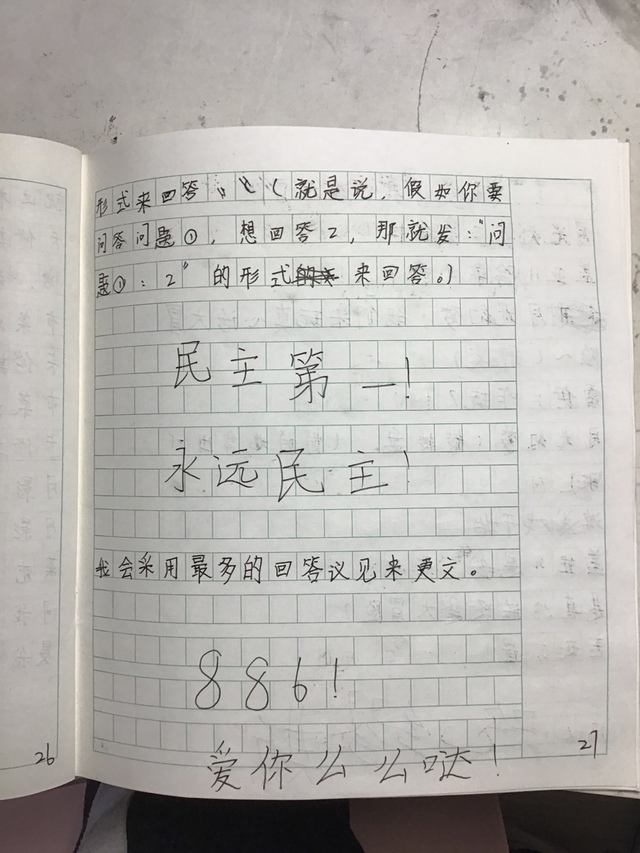 形式来回答》《(就是说，假如你要
问答问题①，想回答2，那就发："问
题①：2"的形式来回答。)
民主第一！
永远民主！
我会采用最多的回答议见来更文。
886！
爱你么么哒！
26
27